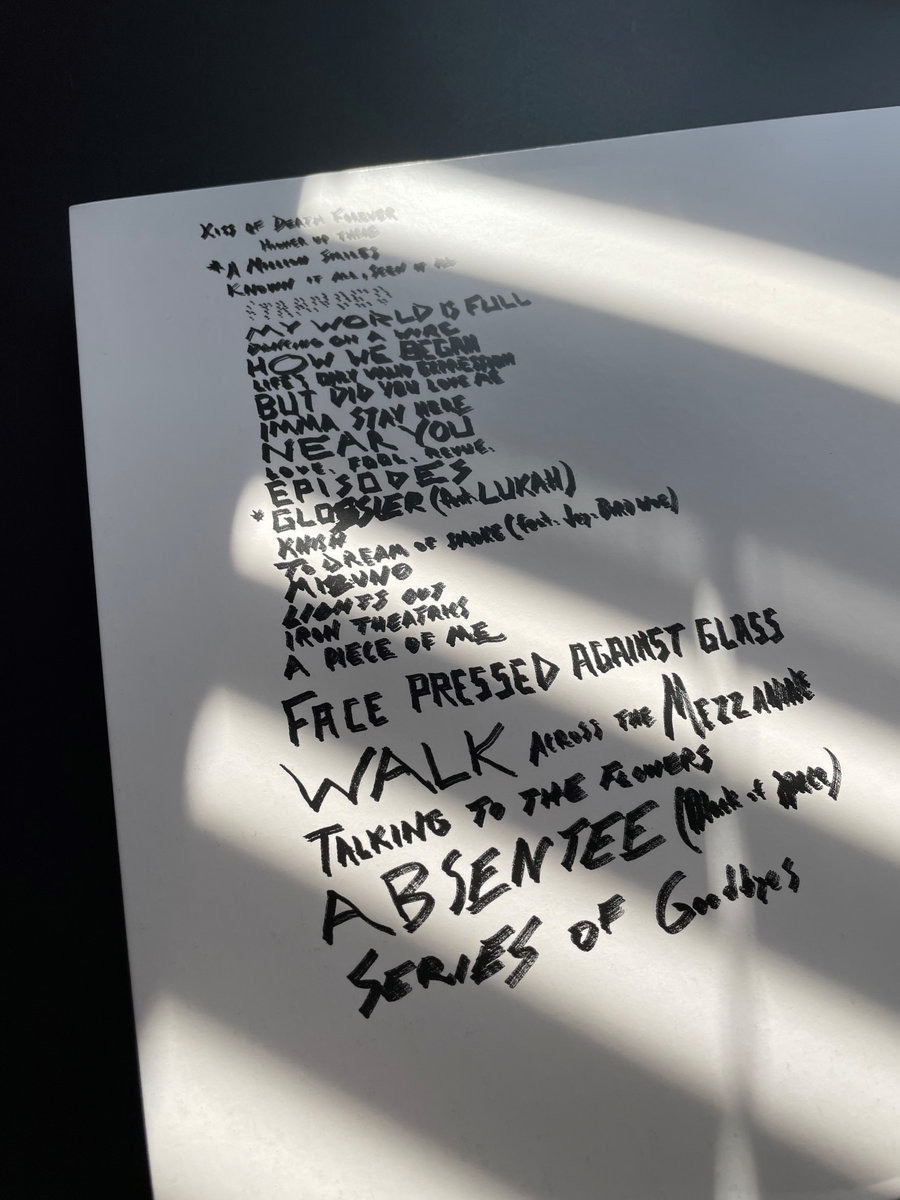 KISS OF DEATH FOREVER
HIGHER UP THERE
*A MILLION SMILES
KNOWN IT ALL, SEEN IT ALL
STRANDED
MY WORLD IS FULL
DANCING ON A WIRE
HOW WE BEGAN
LIFE'S ONLY VALID EXPRESSION
BUT DID YOU LOVE ME
IMMA STAY HERE
NEAR YOU
LOVE. FOOL. REVUE.
EPISODES
*GLOSSIER (feat. LUKAH)
TO DREAM OF SMOKE (feat. Jay. BROWNE)
MIZUNO
LIGHTS OUT
IRON THEATRICS
A PIECE OF ME
FACE PRESSED AGAINST GLASS
WALK ACROSS THE MEZZANINE
TALKING TO THE FLOWERS
ABSENTEE (Black of space)
SERIES OF Goodbyes